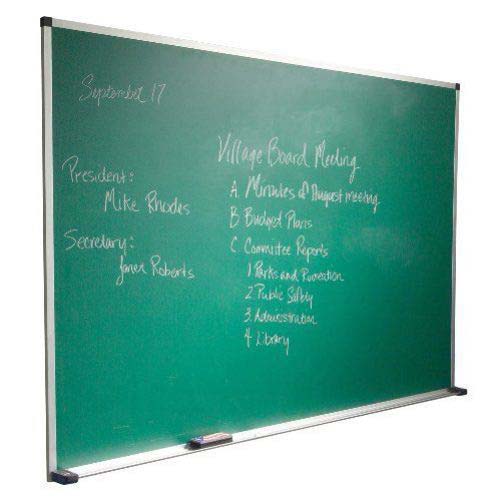 September 17
President:
Mike Rhodes
Secretary:
Janet Roberts
Village Board Meeting
A. Minutes of August meeting
B Budget Plans
C Committee Reports
1 Parks and Recreation
2. Public Safety
3. Administration
4 Library